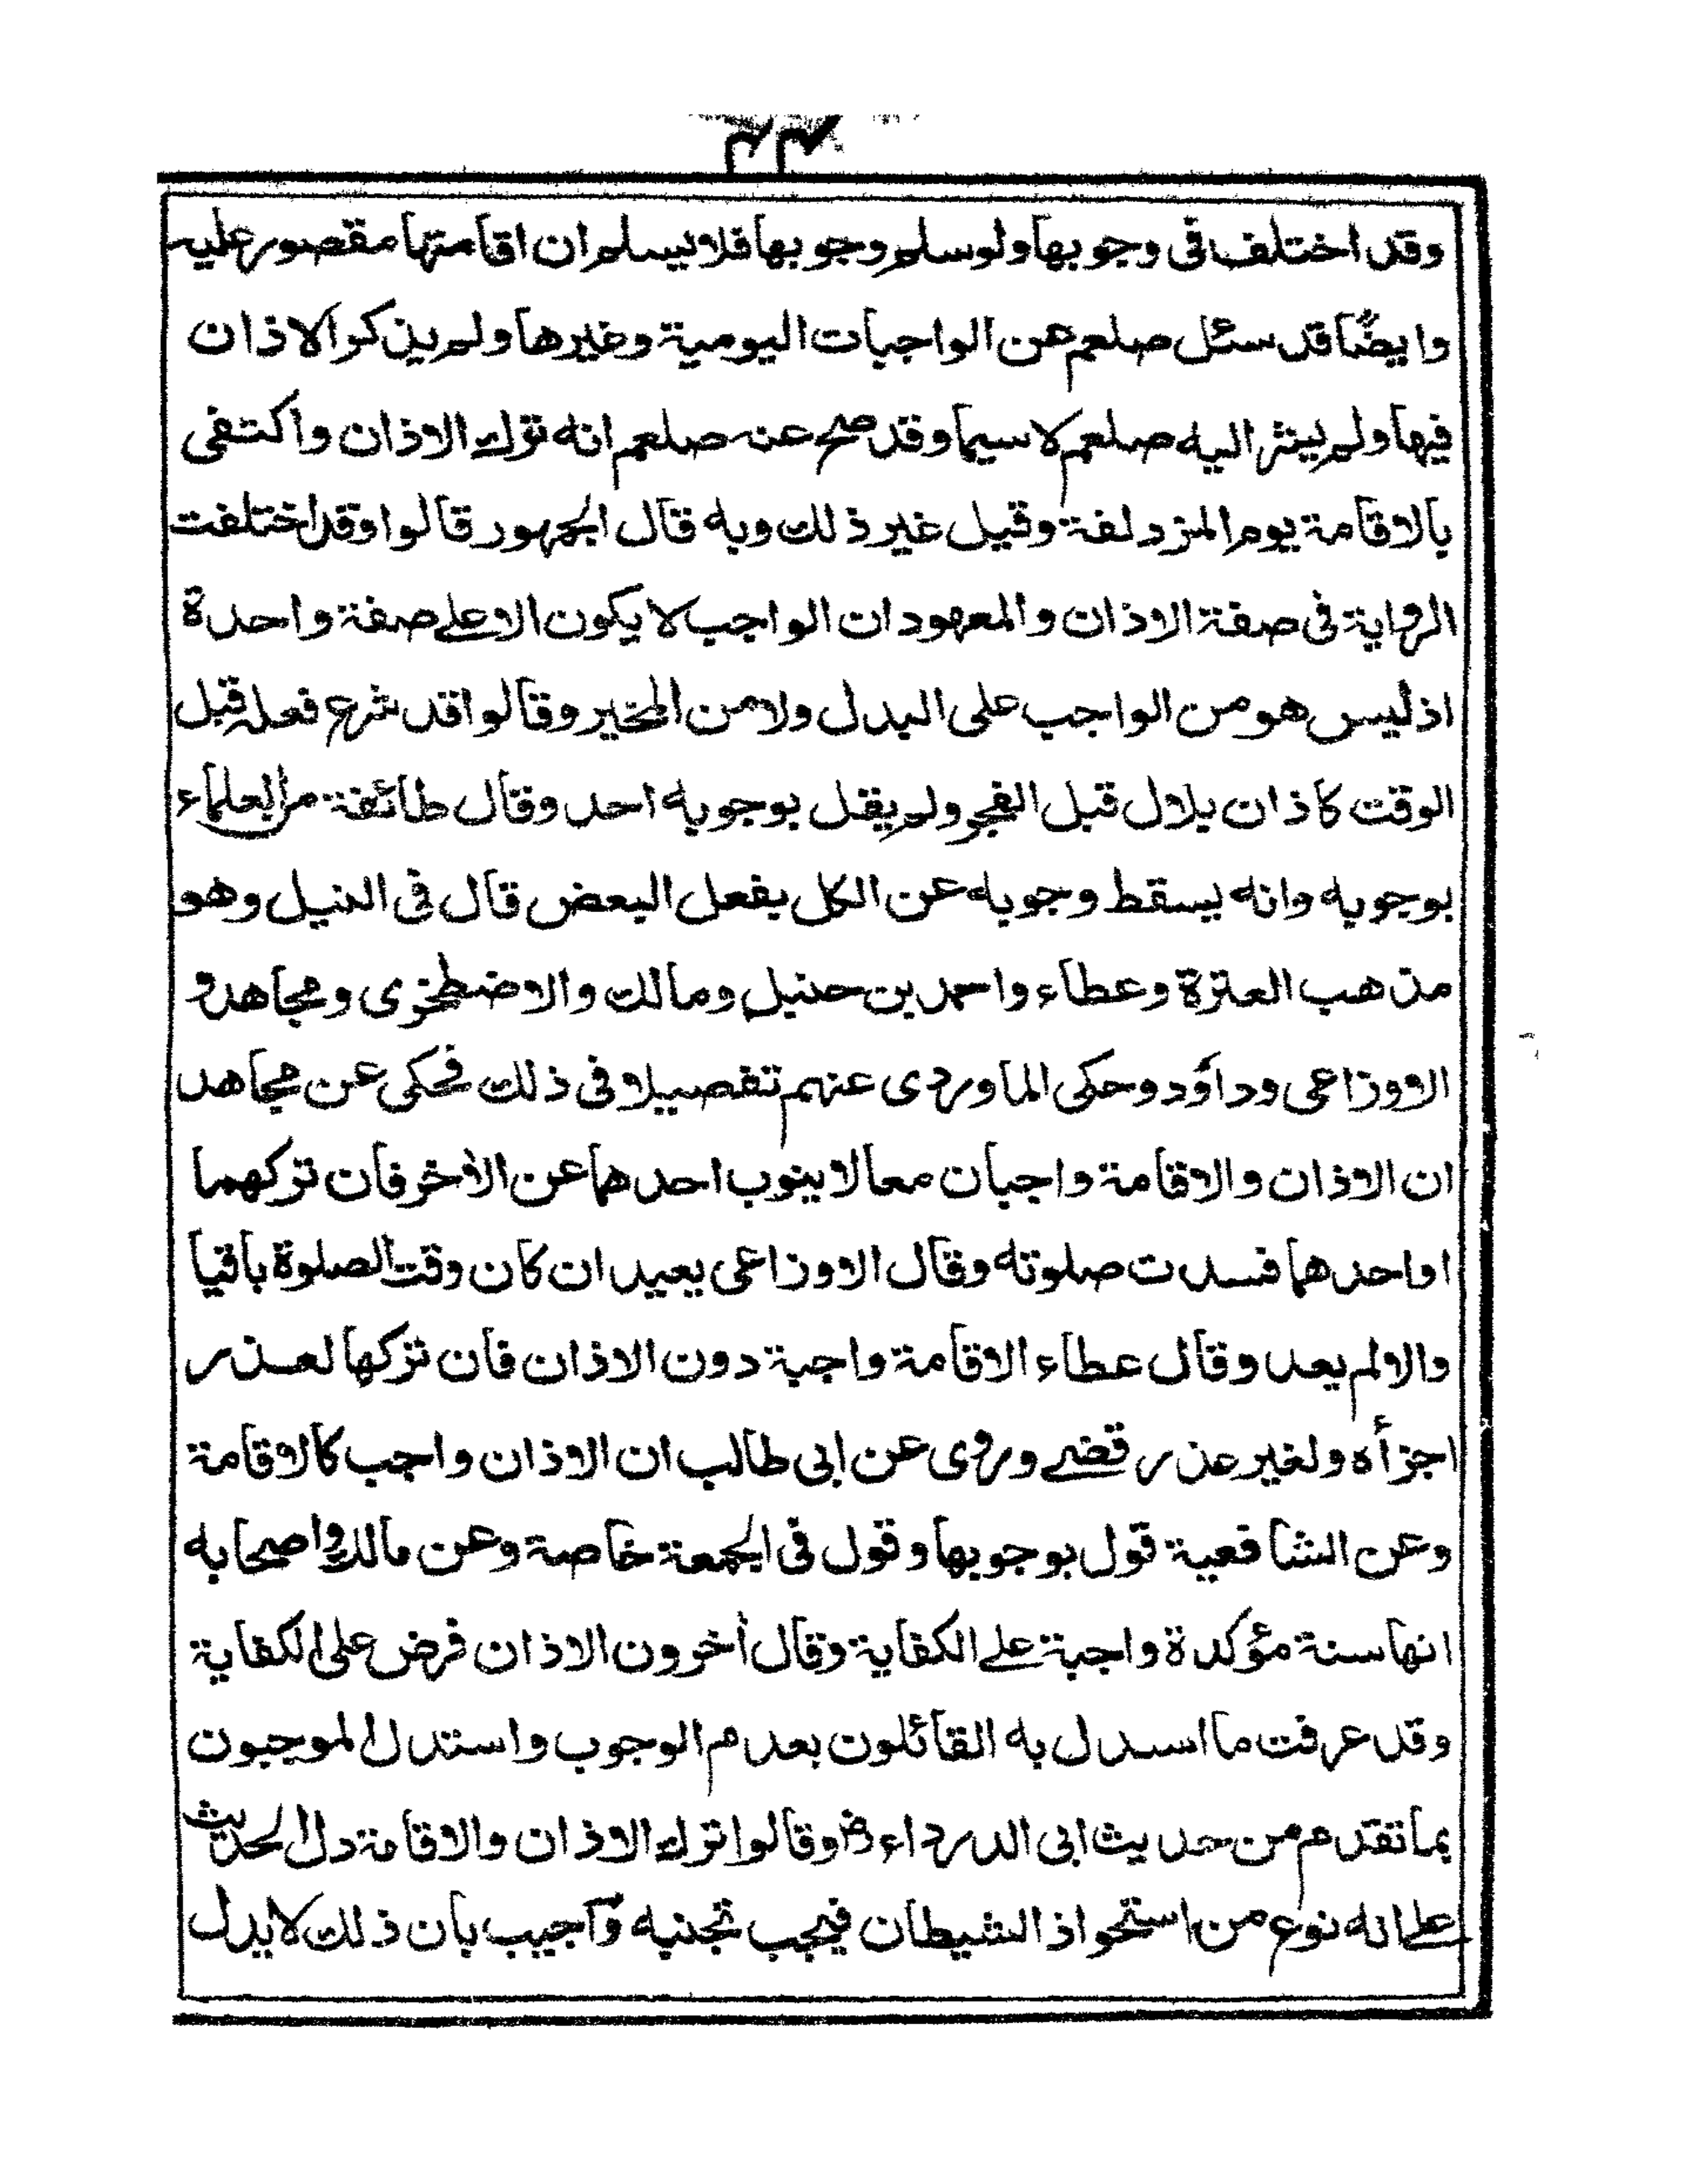 وقد اختلف في وجوبها ولو سلم وجوبها فلا يسلم ان اقامتها مقصور عليه
وايضًا قد سئل صلعم عن الواجبات اليومية وغيرها ولم يذكر الاذان
فيها ولم يشر اليه صلعم لا سيما وقد صح عنه صلعم انه ترك الاذان واكتفى
بالاقامة يوم المزدلفة وقيل غير ذلك وبه قال الجمهور قالوا وقد اختلفت
الرواية في صفة الاذان والمعهود ان الواجب لا يكون الا على صفة واحدة
اذ ليس هو من الواجب على البدل ولا من المخير وقالوا قد شرع فعله قبل
الوقت كاذان بلال قبل الفجر ولم يقل بوجوبه احد وقال طائفة من العلماء
بوجوبه وانه يسقط وجوبه عن الكل بفعل البعض قال في النيل وهو
مذهب العترة وعطاء واحمد بن حنبل ومالك والاضطخرى ومجاهد و
الاوزاعى وداؤد وحكى الماوردى عنهم تفصيلا في ذلك فحكى عن مجاهد
ان الاذان والاقامة واجبان معا لا ينوب احدهما عن الأخر فان تركهما
او احدهما فسدت صلوته وقال الاوزاعى يعيد ان كان وقت الصلوة باقيا
والا لم يعد وقال عطاء الاقامة واجبة دون الاذان فان تركها لعذر
اجزأه ولغير عذر قضى وروى عن ابى طالب ان الاذان واجب كالاقامة
وعن الشافعية قول بوجوبها وقول في الجمعة خاصة وعن مالك واصحابه
انها سنة مؤكدة واجبة على الكفاية وقال أخرون الاذان فرض على الكفاية
وقد عرفت ما اسدل به القائلون بعدم الوجوب واستدل الموجبون
بما تقدم من حديث ابى الدرداء رض وقالوا ترك الاذان والاقامة دل الحديث
على انه نوع من استحواذ الشيطان فيجب تجنبه وأجيب بان ذلك لا يدل